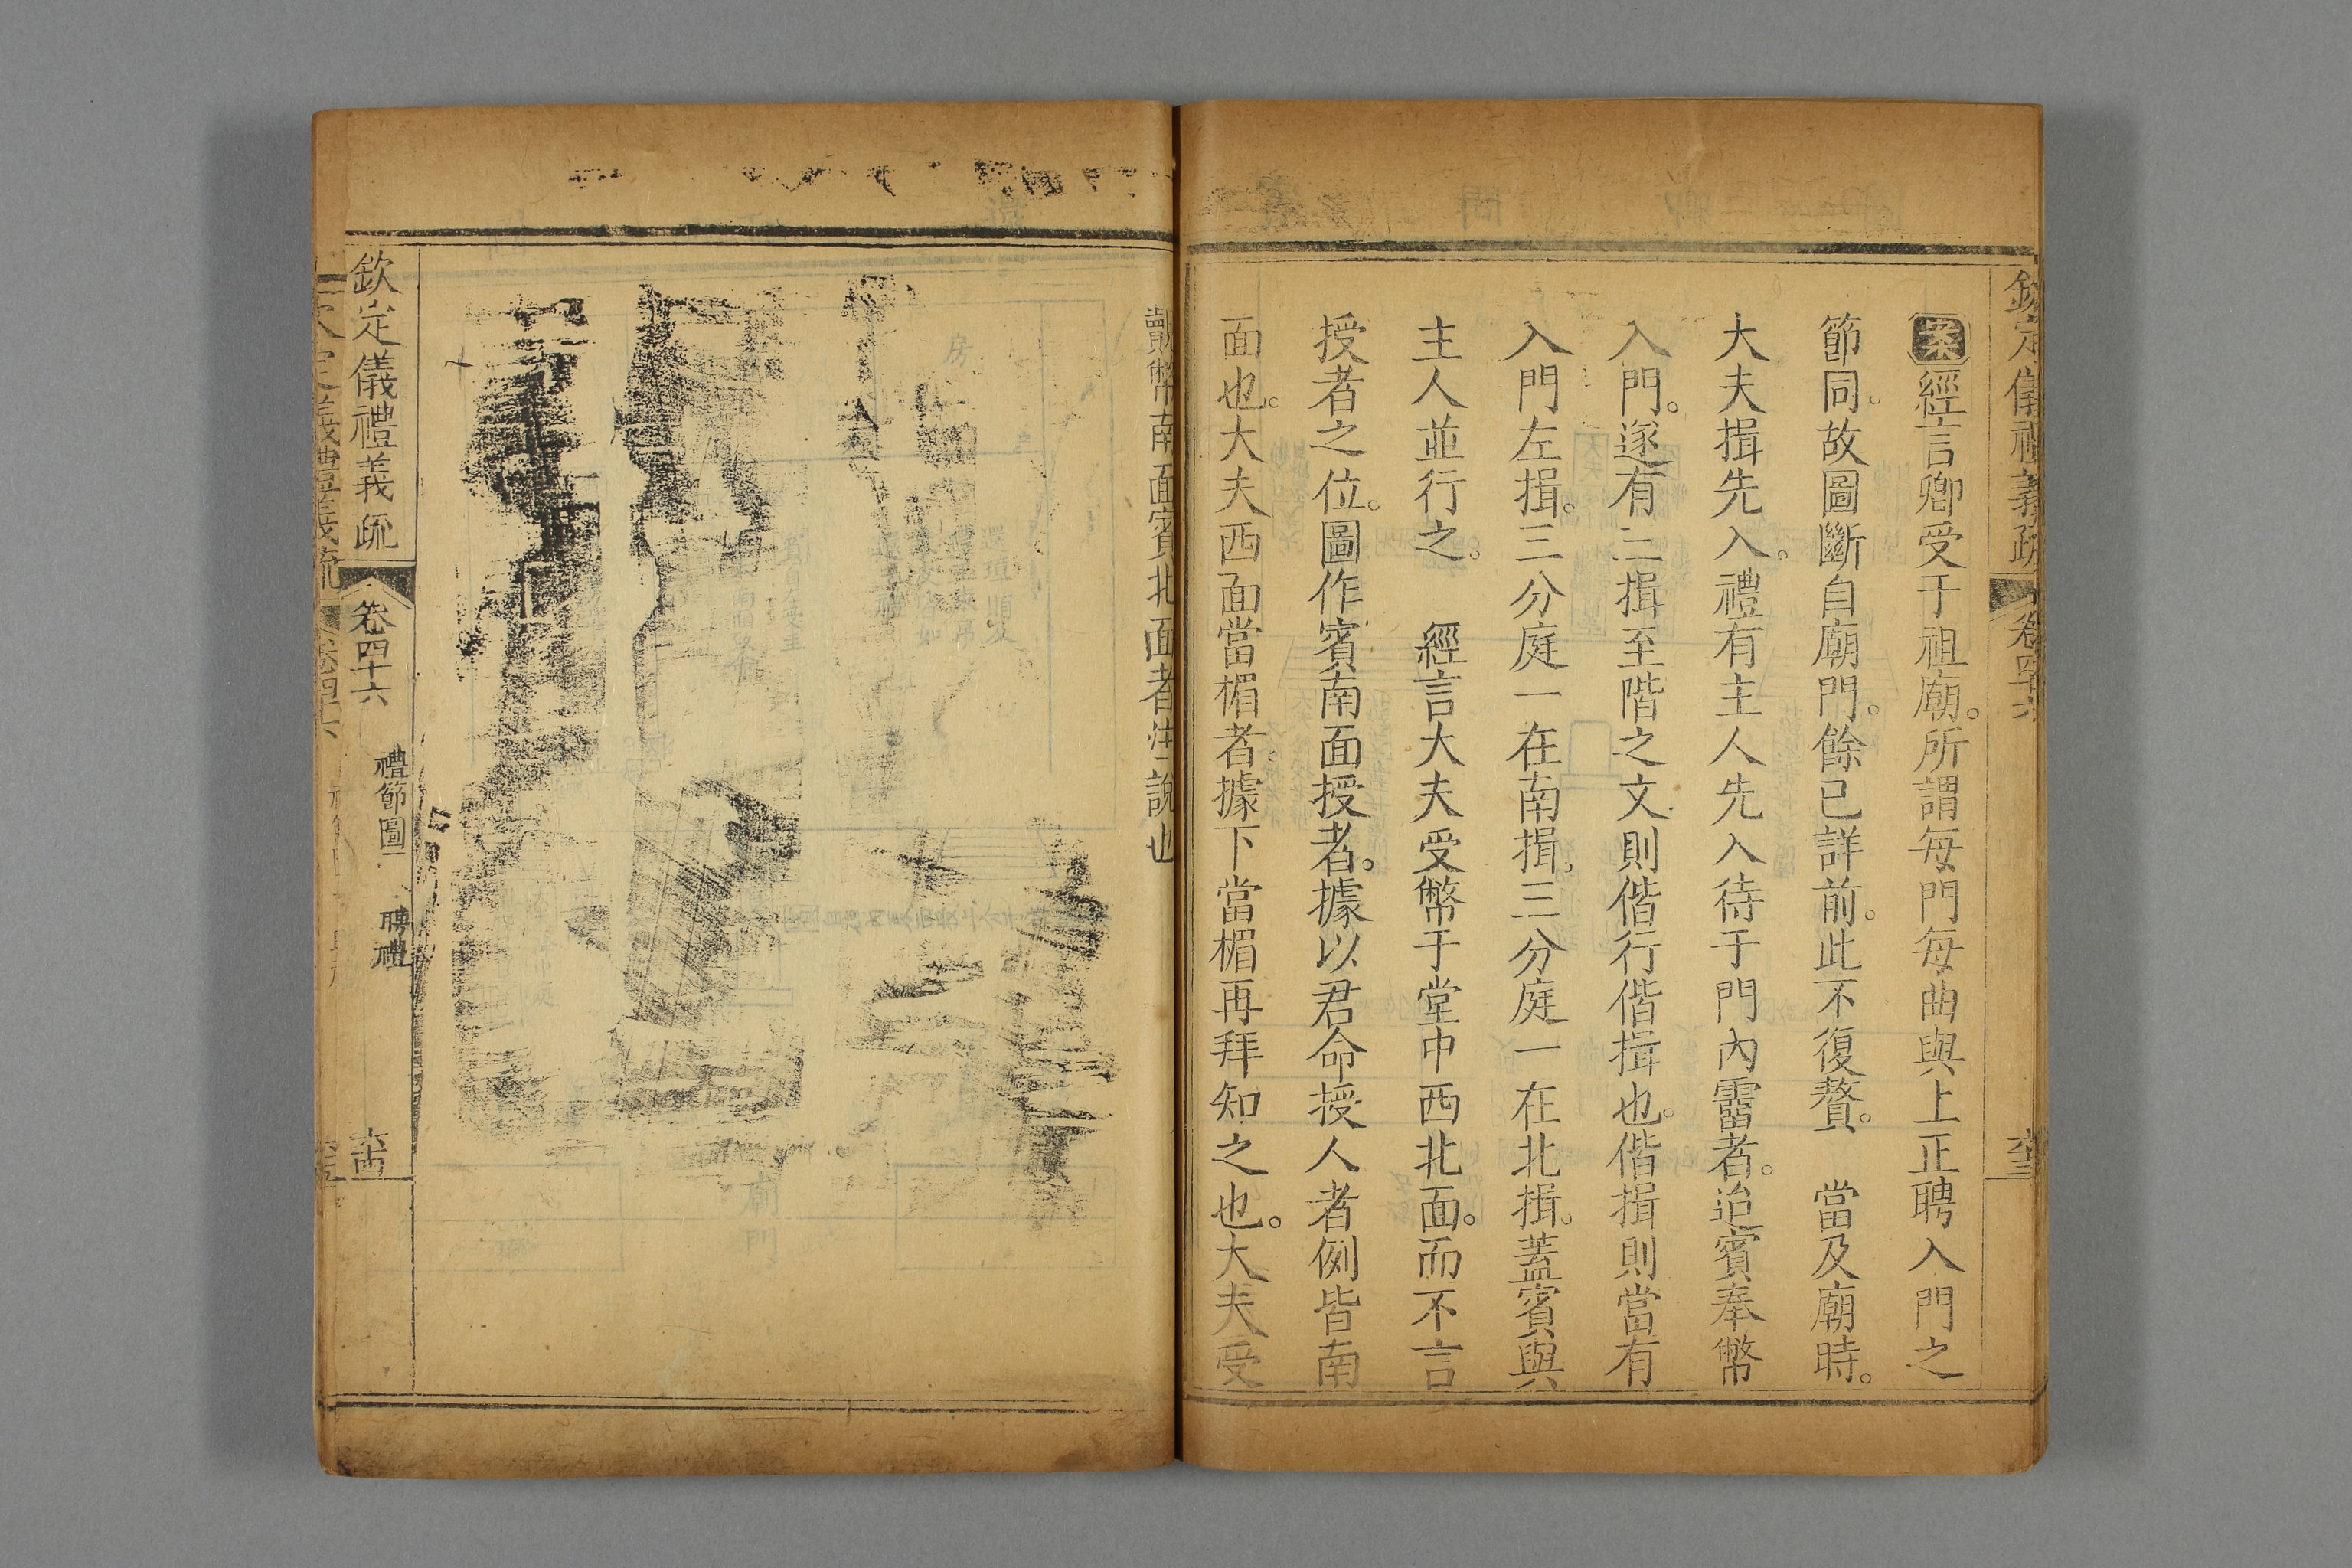 欽定儀禮義疏 卷四十六
案經言卿受于祖廟。所謂每門每曲與上正聘入門之
節同。故圖斷自廟門。餘已詳前。此不復贅。 當及廟時。
大夫揖先入。禮有主人先入待于門內霤者。迨賓奉幣
入門。遂有三揖至階之文。則偕行偕揖也。偕揖則當有
入門左揖。三分庭一在南揖。三分庭一在北揖。蓋賓與
主人並行之。 經言大夫受幣于堂中西北面。而不言
授者之位。圖作賓南面授者。據以君命授人者例皆南
面也。大夫西面當楣者。據下當楣再拜知之也。大夫受
幣南面賓北面者注說也
欽定儀禮義疏 卷四十六 禮節圖一 聘禮 六四